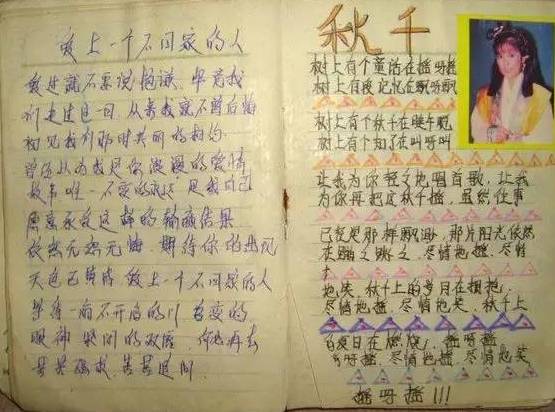 爱上一个不回家的人
爱过就不要说抱歉 毕竟我
们走过这一回 从来我就不曾后悔
初见我们那时美丽的相约
曾经以为我是你浪漫的爱情
故事唯一不变的永远 是我自己
愿意承受这样的输赢结果
依然无怨无悔 期待你的出现
天色已黯 爱上一个不回家的人
等待一扇不开启的门 善变的
眼神 紧闭的双唇 何必再去
苦苦强求 苦苦追问
秋千
树上有个童话在摇呀摇
树上有段记忆在飘呀飘
树上有个秋千在晚午
树上有个知了在叫呀叫
让我为你轻轻地唱首歌 让我
为你再把这秋千摇 虽然往事
已经是那样飘渺 那片阳光依然
在跳之跳之 尽情地摇 尽情
地笑 秋千上的岁月在拥抱
尽情地摇 尽情地笑 秋千上
的夏日在燃烧 摇呀
摇 尽情地摇 尽情地笑
摇呀摇!!!